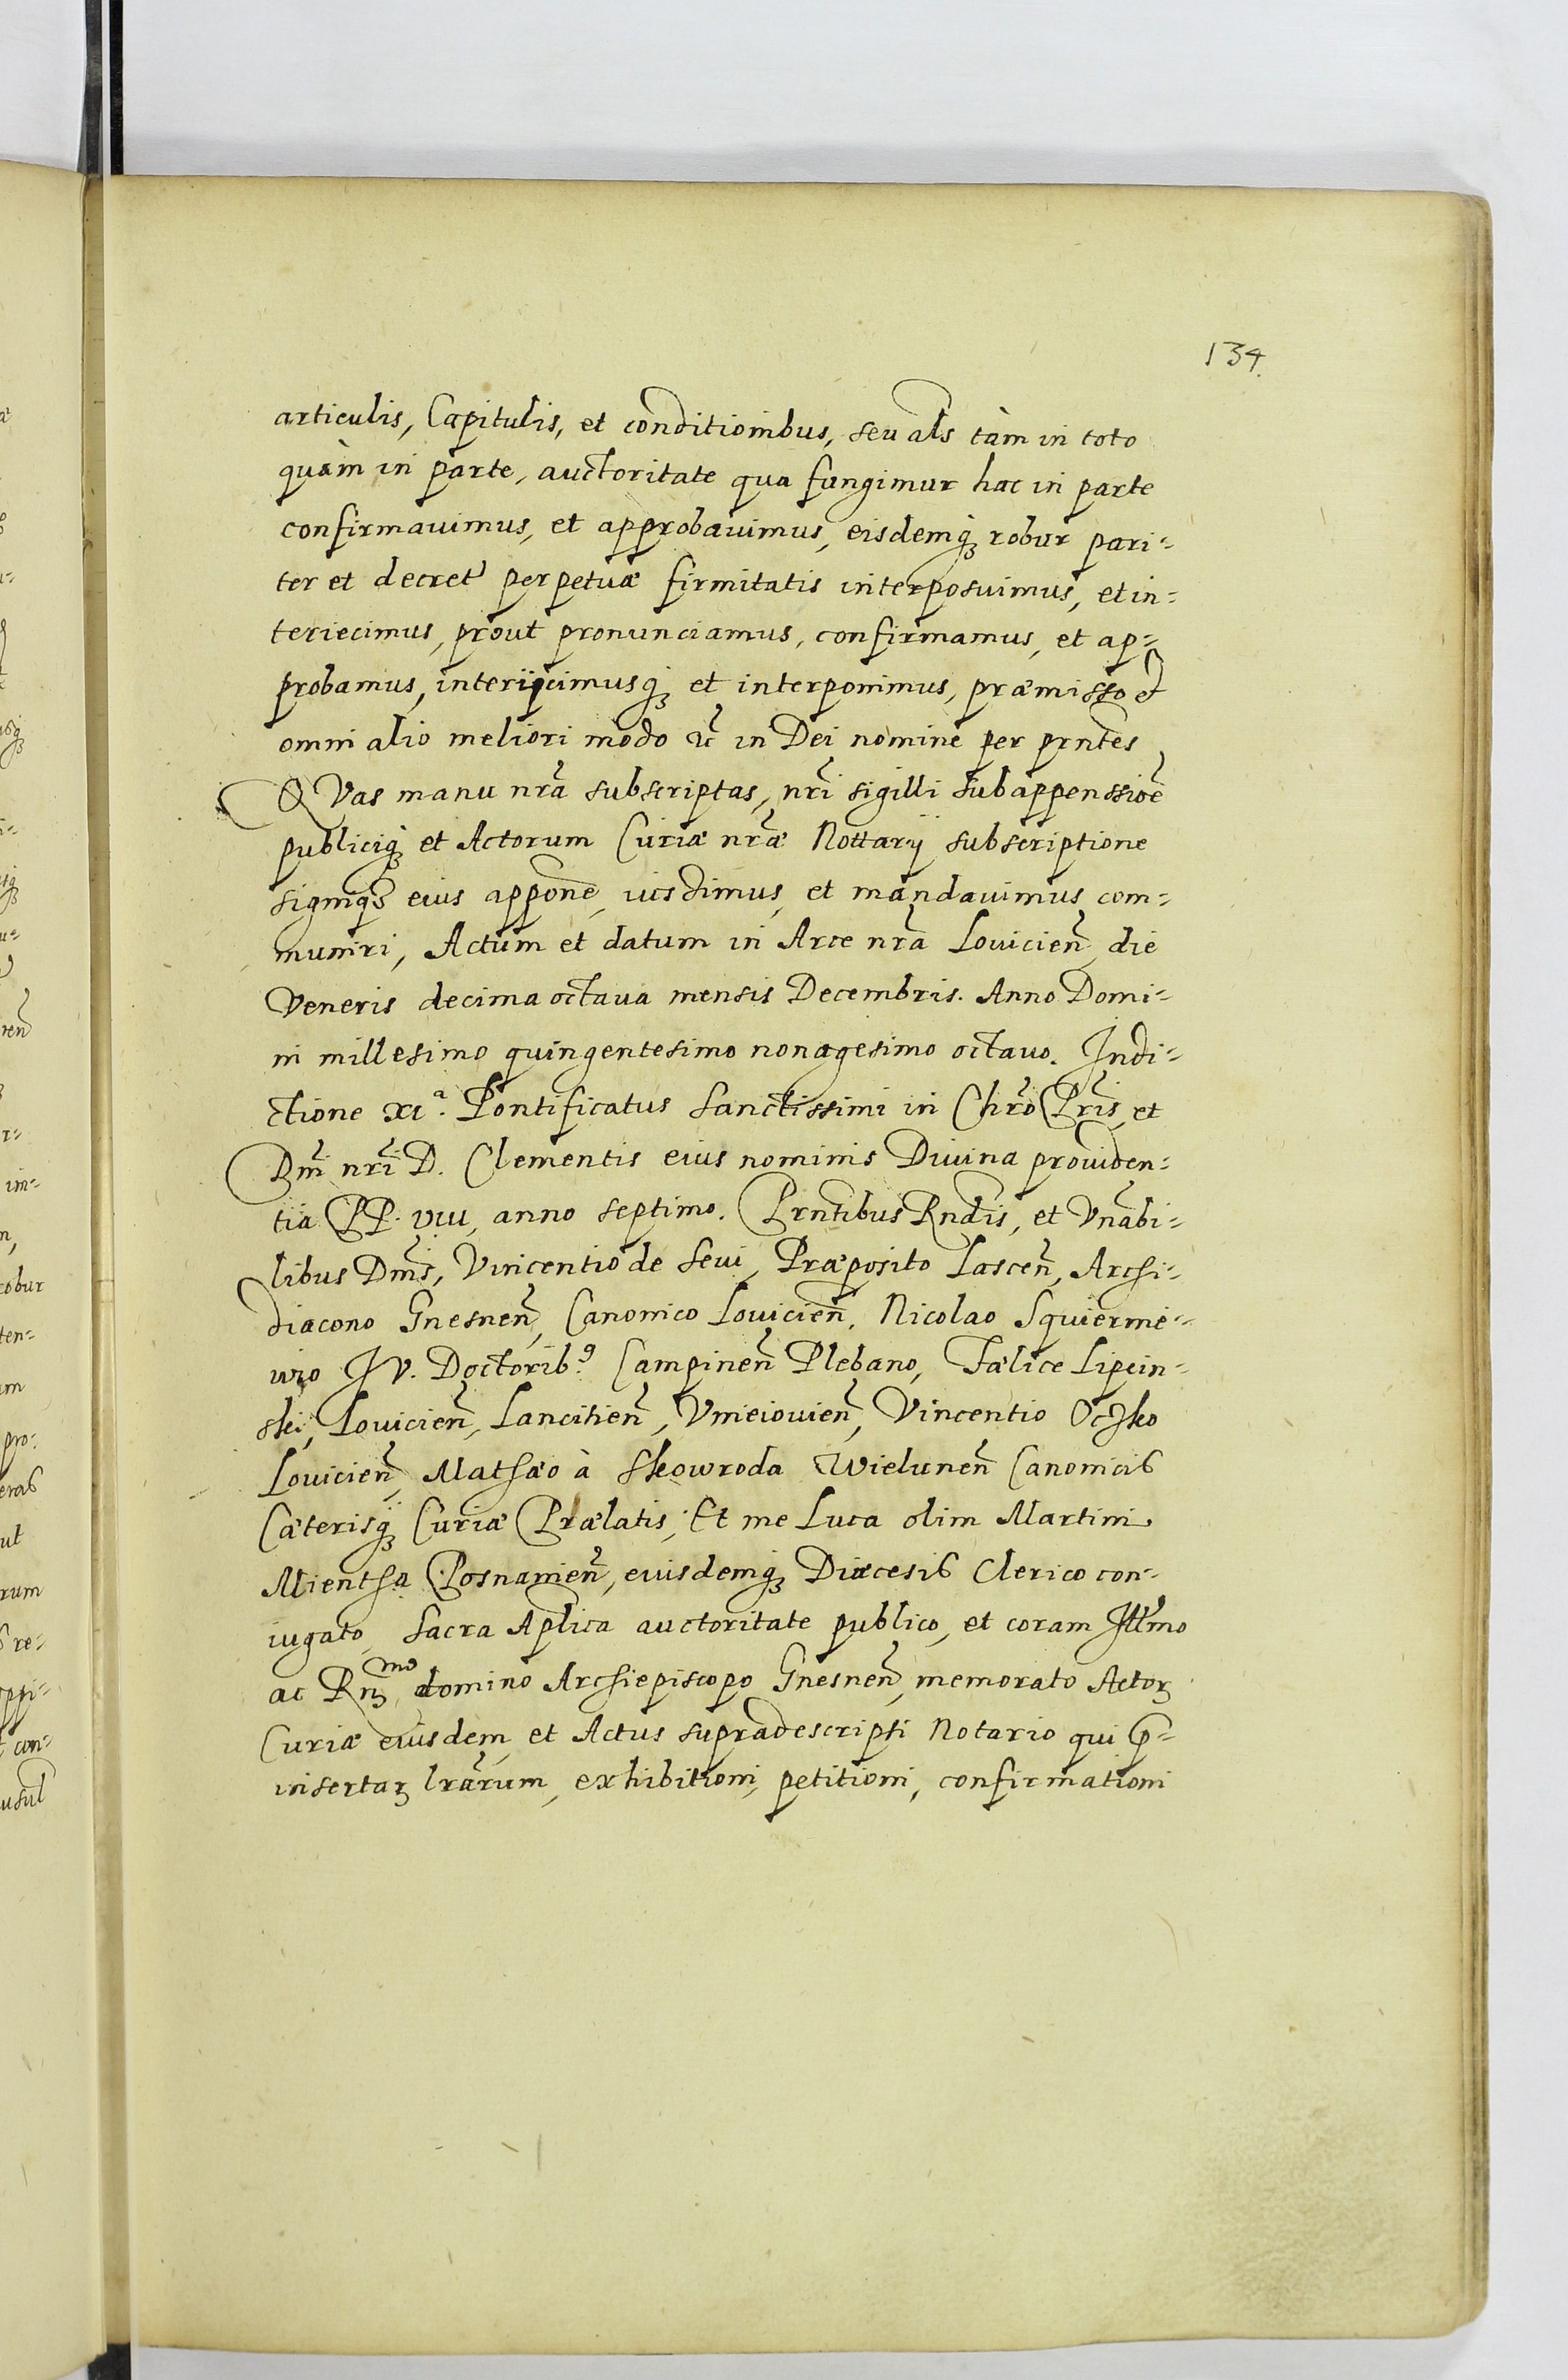 134.
articulis, Capitulis, et conditionibus, seu als tàm in toto
quàm in parte, auctoritate qua fungimur hac in parte
confirmauimus, et approbauimus, eisdemq́ꝫ robur pari⸗
ter et decret perpetuæ firmitatis interposuimus, et in⸗
teriecimus, prout pronunciamus, confirmamus, et ap⸗
probamus, interijcimusq́ꝫ et interponimus, præmisso et
omni alio meliori modo ꝛc̃ in Dei nomine per prñtes
QVas manu nrã subscriptas, nrĩ sigilli subappenssioẽ
publiciq́ꝫ et Actorum Curiæ nrãe Nottarij subscriptione
signiq́ꝫ eius apponẽ, iussimus, et mandauimus com⸗
muniri, Actum et datum in Arce nrã Louicień, die
Veneris decima octaua mensis Decembris. Anno Domi⸗
ni millesimo quingentesimo nonagesimo octauo. Indi⸗
ctione xiᵃ. Pontificatus Sanctissimi in Chrõ Prĩs, et
Dñi nrĩ D. Clementis eius nominis Diuina prouiden⸗
tia PP. viii, anno septimo. Prñtibus Rndis, et Vnãbi⸗
libus Dñis, Vincentio de Seui, Præposito Lasceñ, Archi⸗
diacono Gnesneñ, Canonico Louicieñ, Nicolao Squiernie⸗
uio IV. Doctoribꝰ Campineñ Plebano, Fælice Lipcin⸗
ski, Louicieñ, Lancitieñ, Vnieiouieñ, Vincentio Ocsko
Louicieñ, Mathæo à Skowroda Wieluneñ Canonicis
Cæterisq́ꝫ Curiæ Prælatis; Et me Luca olim Martini
Mientha Posnanieñ, eiusdemq́ꝫ Diæcesis Clerico con⸗
iugato, Sacra Aplica auctoritate publico, et coram Illm̃o
ac Rñꝫᵐᵒ domino Archiepiscopo Gnesneñ, memorato Actoꝝ
Curiæ eiusdem, et Actus supradescripti Notario qui p̃⸗
insertaꝝ lrãrum, exhibitioni, petitioni, confirmationi